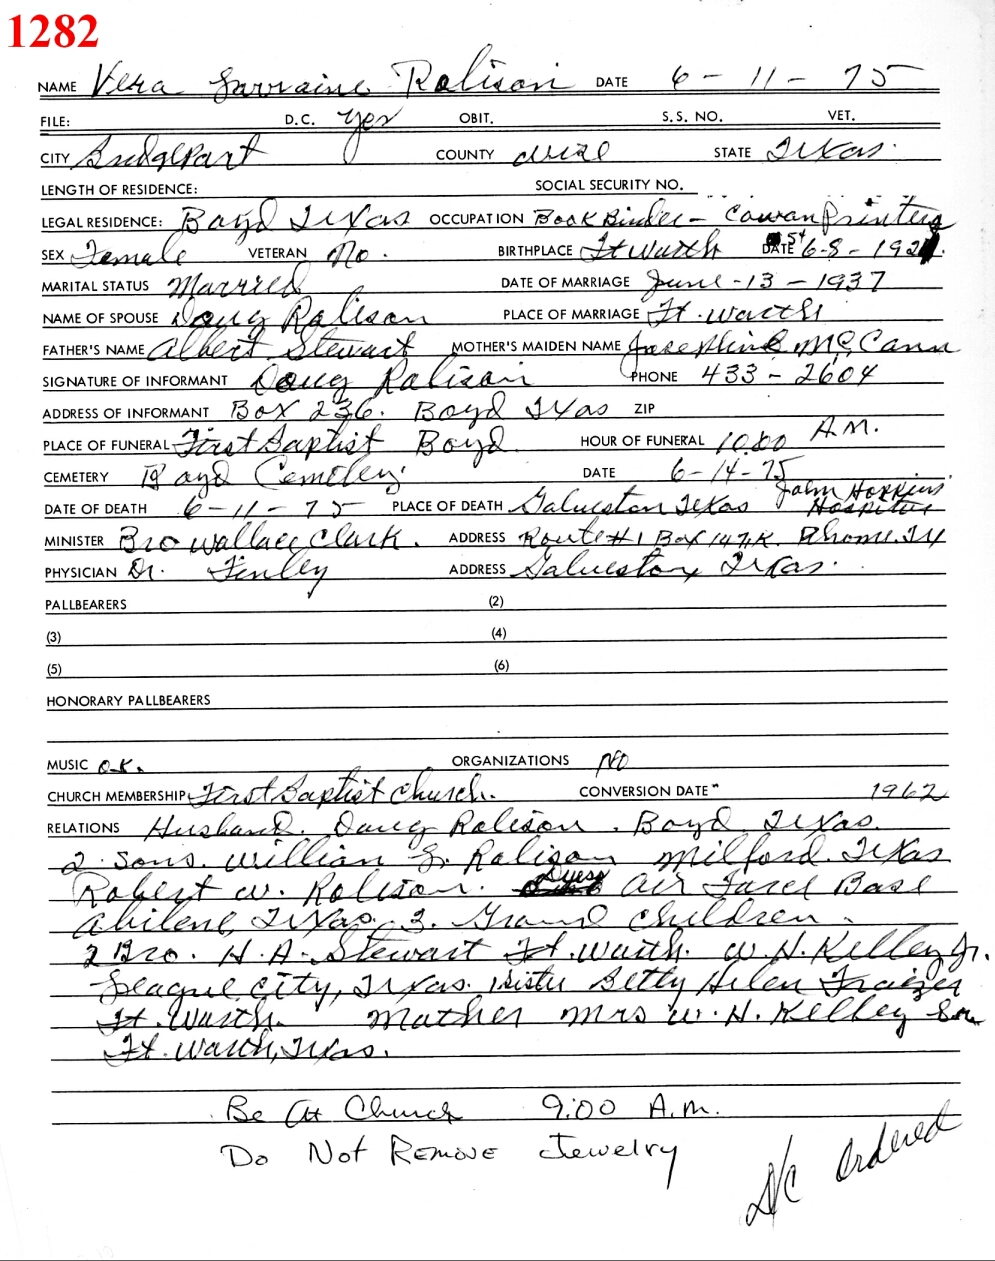 1282
NAME Vera Larraine Ralison DATE 6-11-75
FILE: D.C. yes OBIT. S.S. NO. VET.
CITY BridgePart COUNTY Wise STATE Texas.
LENGTH OF RESIDENCE: SOCIAL SECURITY NO.
LEGAL RESIDENCE: Boyd Texas OCCUPATION Book Binder - Cowan Printing
SEX Female VETERAN No. BIRTHPLACE Ft Worth DATE 6-8-192
MARITAL STATUS Married DATE OF MARRIAGE June-13-1937
NAME OF SPOUSE Doug Ralison PLACE OF MARRIAGE Ft. Worth
FATHER'S NAME Albert Stewart MOTHER'S MAIDEN NAME Josephine McCann
SIGNATURE OF INFORMANT Doug Ralison PHONE 433-2604
ADDRESS OF INFORMANT Box 236. Boyd Texas ZIP
PLACE OF FUNERAL First Baptist Boyd HOUR OF FUNERAL 10:00 A.M.
CEMETERY Boyd Cemetery DATE 6-14-75
DATE OF DEATH 6-11-75 PLACE OF DEATH Galveston Texas John Hopkins Hospital
MINISTER Bro Wallace Clark. ADDRESS Route #1 Box 147K. Rhome. Tx
PHYSICIAN Dr. Finley ADDRESS Galveston Texas.
PALLBEARERS (2)
(3) (4)
(5) (6)
HONORARY PALLBEARERS
MUSIC O.K. ORGANIZATIONS No
CHURCH MEMBERSHIP First Baptist Church. CONVERSION DATE" 1962
RELATIONS Husband. Doug Ralison. Boyd Texas.
2 Sons. William Ralison Milford. Texas
Robert W. Ralison. Dyess Air Force Base
Abilene Texas. 3. Grand Children.
2 Bro. H. A. Stewart Ft. Worth. W. H. Kelley Jr.
League City, Texas. Sister Betty Helen Fraizer
Ft. Worth. Mother Mrs W. H. Kelley Sr
Ft. Worth, Texas.
Be At Church 9:00 A.M.
Do Not Remove Jewelry
D/C Ordered